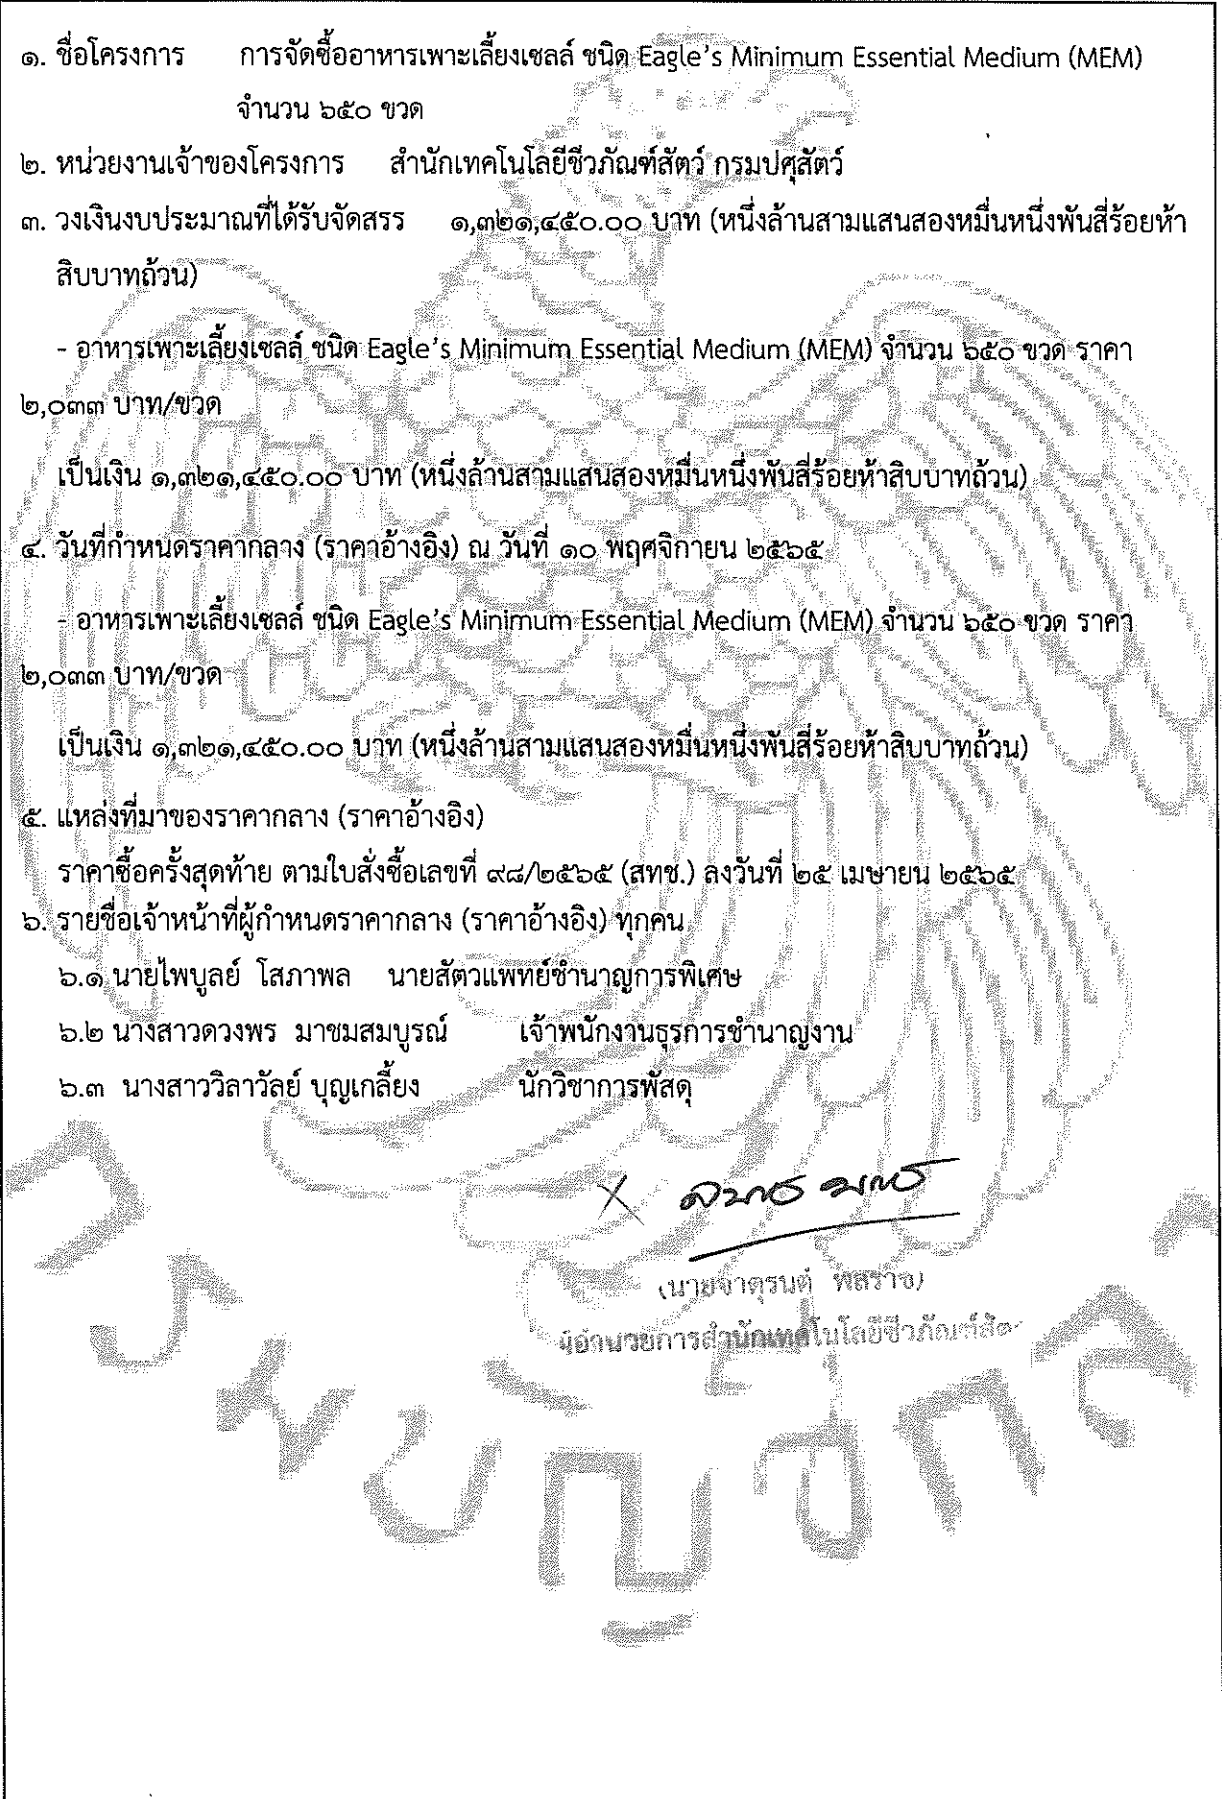 ๑. ชื่อโครงการ การจัดซื้ออาหารเพาะเลี้ยงเซลล์ ชนิด Eagle's Minimum Essential Medium (MEM)
จำนวน ๖๕๐ ขวด
๒. หน่วยงานเจ้าของโครงการ สำนักเทคโนโลยีชีวภัณฑ์สัตว์ กรมปศุสัตว์
๓. วงเงินงบประมาณที่ได้รับจัดสรร ๑,๓๒๑,๔๕๐.๐๐ บาท (หนึ่งล้านสามแสนสองหมื่นหนึ่งพันสี่ร้อยห้า
สิบบาทถ้วน)
- อาหารเพาะเลี้ยงเซลล์ ชนิด Eagle's Minimum Essential Medium (MEM) จำนวน ๖๕๐ ขวด ราคา
๒,๐๓๓ บาท/ขวด
เป็นเงิน ๑,๓๒๑,๔๕๐.๐๐ บาท (หนึ่งล้านสามแสนสองหมื่นหนึ่งพันสี่ร้อยห้าสิบบาทถ้วน)
๔. วันที่กำหนดราคากลาง (ราคาอ้างอิง) ณ วันที่ ๑๐ พฤศจิกายน ๒๕๖๕
- อาหารเพาะเลี้ยงเซลล์ ชนิด Eagle's Minimum Essential Medium (MEM) จำนวน ๖๕๐ ขวด ราคา
๒,๐๓๓ บาท/ขวด
เป็นเงิน ๑,๓๒๑,๔๕๐.๐๐ บาท (หนึ่งล้านสามแสนสองหมื่นหนึ่งพันสี่ร้อยห้าสิบบาทถ้วน)
๕. แหล่งที่มาของราคากลาง (ราคาอ้างอิง)
ราคาซื้อครั้งสุดท้าย ตามใบสั่งซื้อเลขที่ ๙๘/๒๕๖๕ (สทช.) ลงวันที่ ๒๕ เมษายน ๒๕๖๕
๖. รายชื่อเจ้าหน้าที่ผู้กำหนดราคากลาง (ราคาอ้างอิง) ทุกคน
๖.๑ นายไพบูลย์ โสภาพล นายสัตวแพทย์ชำนาญการพิเศษ
๖.๒ นางสาวดวงพร มาชมสมบูรณ์ เจ้าพนักงานธุรการชำนาญงาน
๖.๓ นางสาววิลาวัลย์ บุญเกลี้ยง นักวิชาการพัสดุ
(นายจาตุรนต์ พลราช)
ผู้อำนวยการสำนักเทคโนโลยีชีวภัณฑ์สัตว์